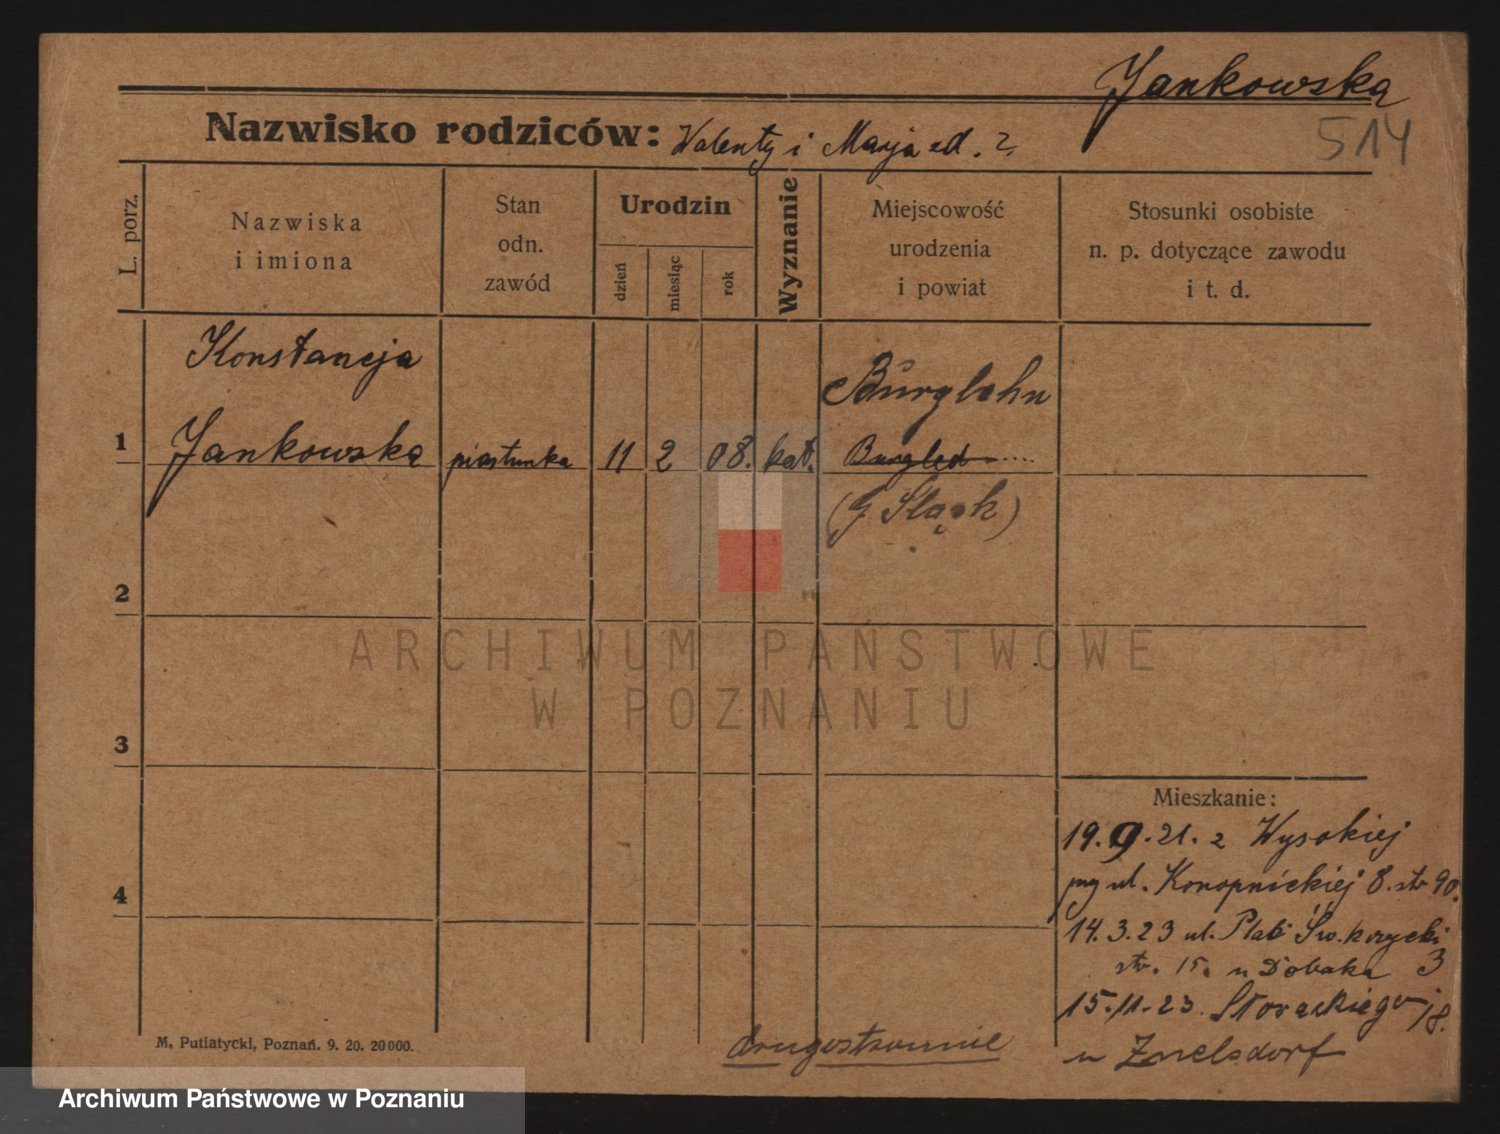 Jankowska
514
Nazwisko rodziców: Walenty i Marja ed. z.
L. porz.
Nazwiska
i imiona
Stan
odn.
zawód
Urodzin
dzień
miesiąc
rok
Wyznanie
Miejscowość
urodzenia
i powiat
Stosunki osobiste
n. p. dotyczące zawodu
i t. d.
Konstancja
Burglehn
1 Jankowska piastunka 11 2 08. kat.
(G Śląsk)
2
ARCHIWUM PAŃSTWOWE
W POZNANIU
3
Mieszkanie:
19.9.21. z Wysokiej
ul. Konopnickiej 8. str 90.
4
14.3.23 ul. Plac Św. krzycki 3
str. 15. u
15.11.23. 18.
u
M. Putiatycki, Poznań. 9. 20. 20000.
drugostronnie
Archiwum Państwowe w Poznaniu